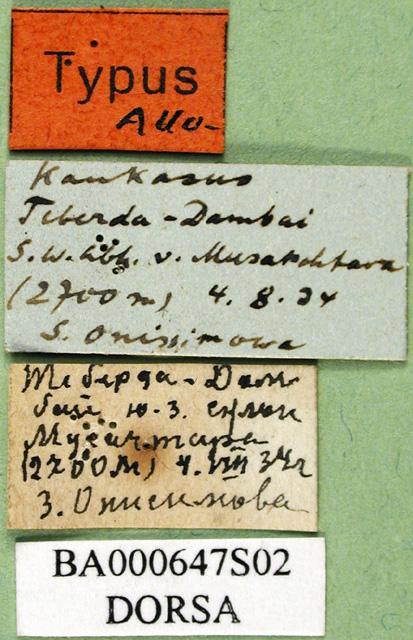 Typus
Allo-
Kaukasus
Teberda-Dambai
S.w. Abh. v. Musatchtara
(2700 m) 4. 8. 34
S. Onissimowa
Теберда-Дом
бай ю-з. склон
Мусат-тара
(2700м) 4.VIII 34г
З. Онисимова
BA000647S02
DORSA